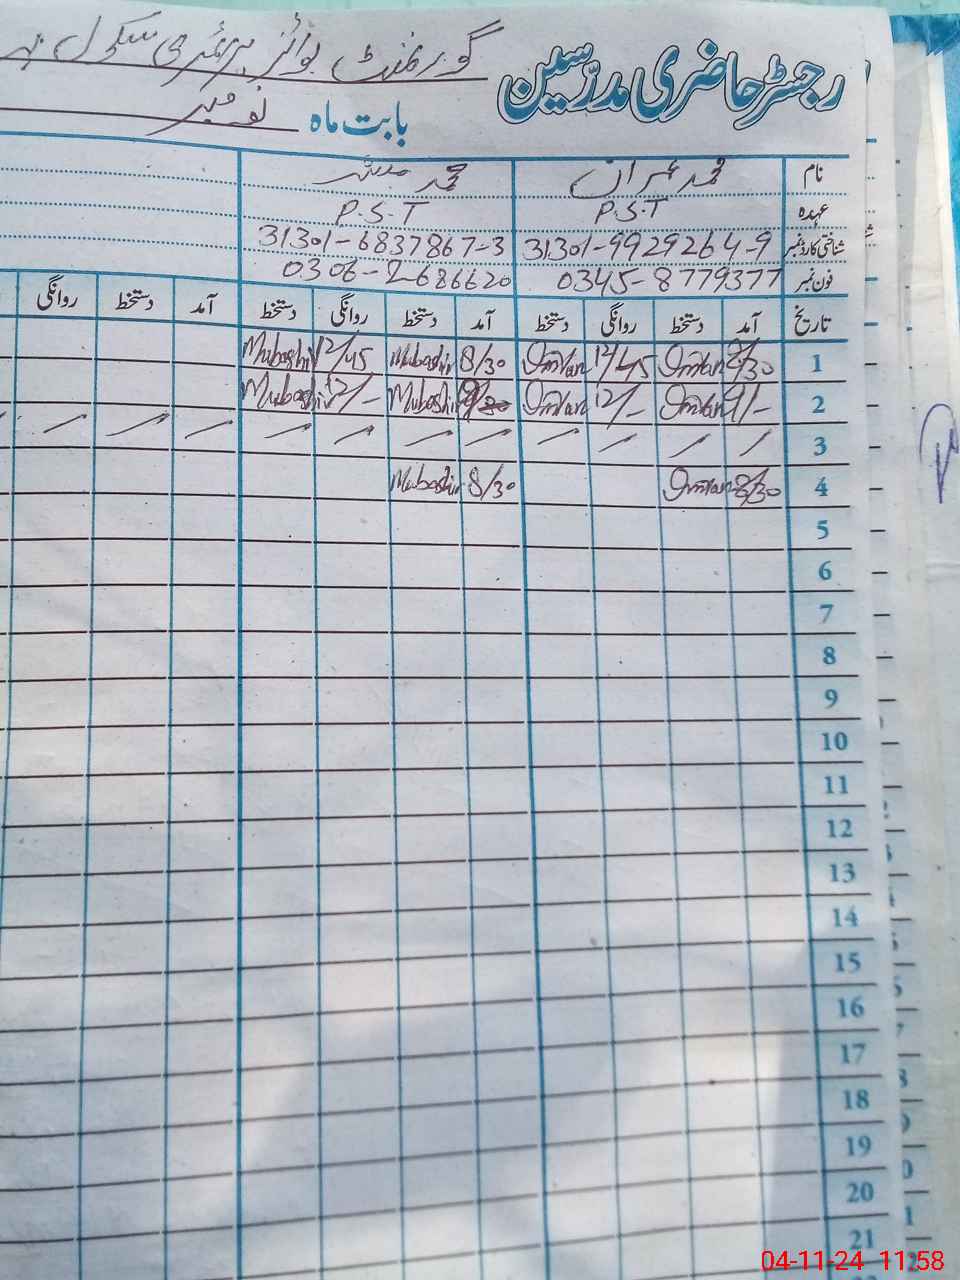 رجسٹر حاضری مدرّسین گورنمنٹ بوائز پرائمری سکول
بابت ماہ نومبر
نام محمد عمران محمد مبشر
عہدہ P.S.T P.S.T
شناختی کارڈ نمبر 31301-9929264-9 31301-6837867-3
فون نمبر 0345-8779377 0306-2686620
تاریخ آمد دستخط روانگی دستخط آمد دستخط روانگی دستخط آمد دستخط روانگی
1 8/30 Imran 12/45 Imran 8/30 Mubashir 12/45 Mubashir
2 9/- Imran 12/- Imran Mubashir 12/- Mubashir
3
4 8/30 Imran 8/30 Mubashir
5
6
7
8
9
10
11
12
13
14
15
16
17
18
19
20
21
04-11-24 11:58